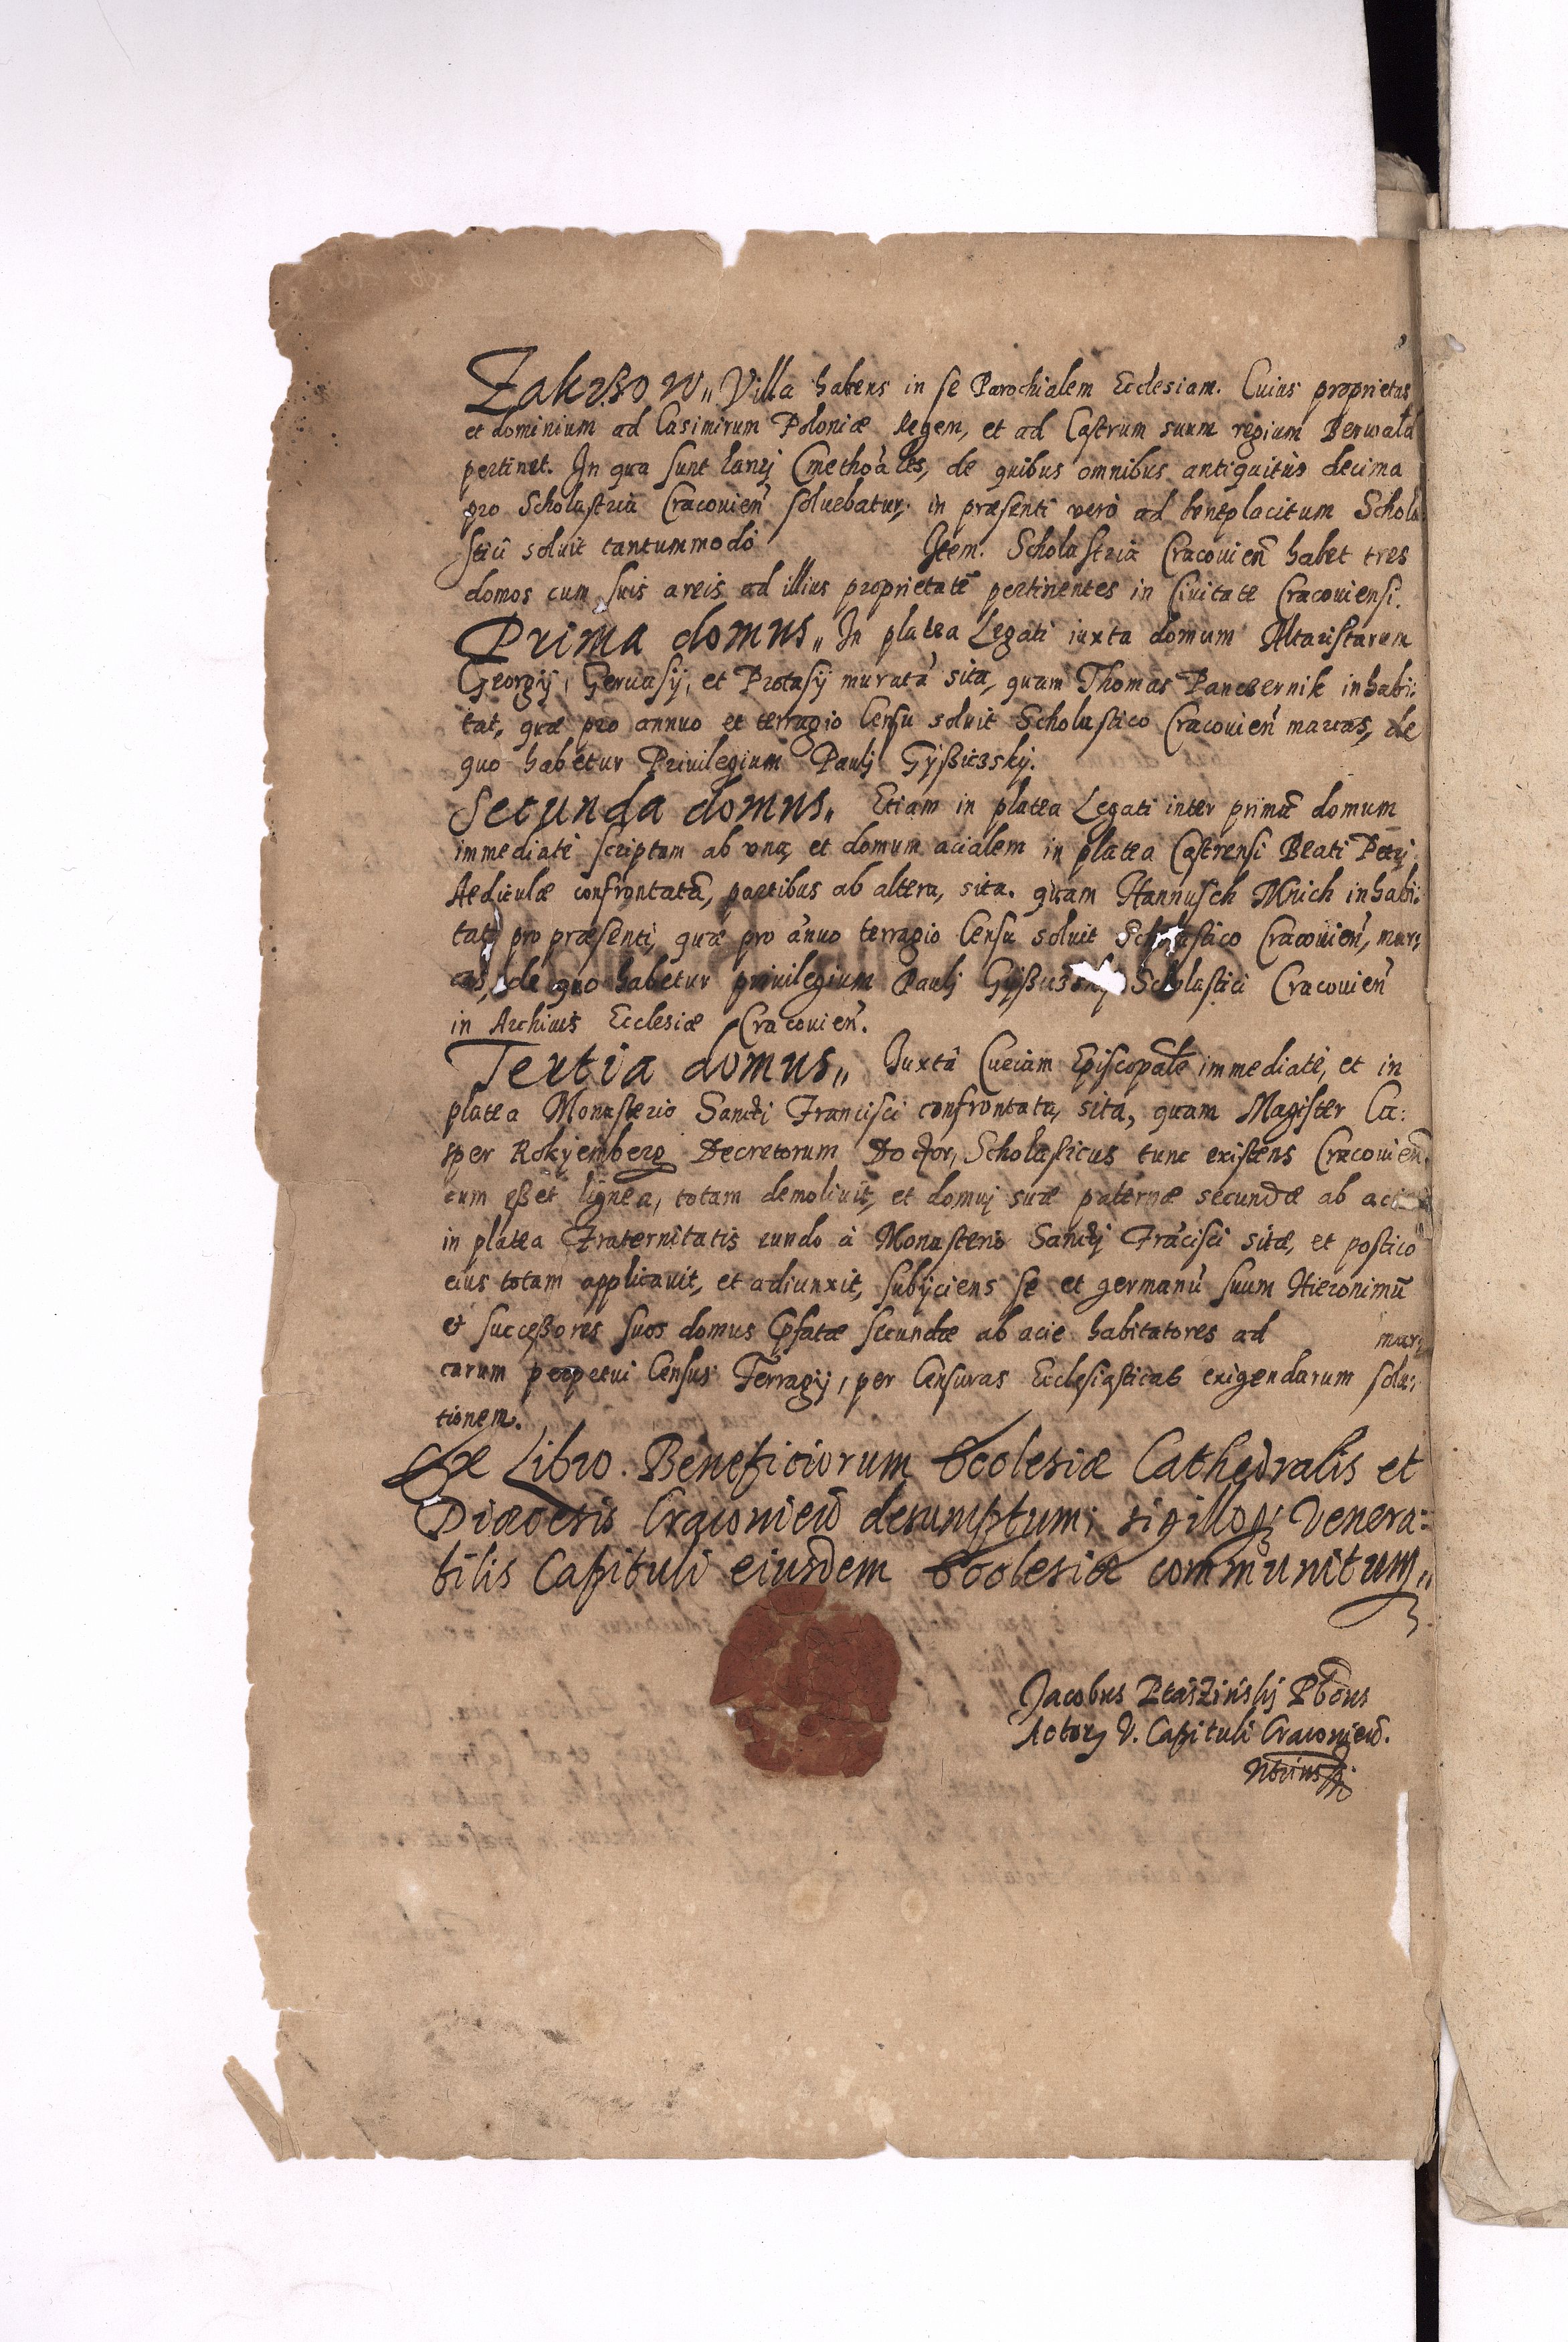 Zakrzow„ Villa habens in se Parochialem Ecclesiam. Cuius proprietas
et dominium ad Casimirum Poloniæ Regem, et ad Castrum suum regium Berwald
pertinet. In qua sunt lanej Cmethoales, de quibus omnibus antiquitùs decima
pro Scholastria Cracovien̄ soluebatur, in præsenti verò ad beneplacitum Schola
stici soluit tantummodò Item. Scholastria Cracouien̄ habet tres
domos cum suis areis ad illius proprietatē pertinentes in Ciuitate Cracouiensi.
Prima domus„ In platea Legati iuxta domum Altaristarum
Georgij, Geruasij, et Protasij murata sita, quam Thomas Pancernik inhabi:
tat, quæ pro annuo et terragio Censu soluit Scholastico Cracouien̄ marcas, de
quo habetur Priuilegium Paulj Gyßiczskj.
Secunda domus„ Etiam in platea Legati inter primā domum
immediatè scriptam ab vna, et domum acialem in platea Castrensi Beati Petrj
Aediculæ confrontatā, partibus ab altera, sita. quam Hannusch Mnich inhabi:
tat pro præsenti, quæ pro ānuo terragio Censu soluit Scholastico Cracouien̄, mar:
cas, de quo habetur priuilegium Paulj Scholastici Cracouien̄
in Archiuis Ecclesiæ Cracouien̄.
Tertia domus„ Iuxtà Curiam Episcopalē immediatè, et in
platea Monasterio Sancti Francisci confrontata, sita, quam Magister Ca:
sper Rokyemberg Decretorum Doctor, Scholasticus tunc existens Cracouien̄,
cum eßet lignea, totam demoliuit, et domuj suæ paternæ secundæ ab acie
in platea Fraternitatis eundo à Monasterio Sanctj Frācisci sitæ, et postico
eius totam applicauit, et adiunxit, subijciens se et germanū suum Hieronimū
et succeßores suos domus p̄fatæ secundæ ab acie habitatores ad mar:
carum perpetui Census Terragij, per Censuras Ecclesiasticas exigendarum solu:
tionem.
Ex Libro Beneficiorum Ecclesiæ Cathedralis et
Diæcesis Cracouien̄ desumptum; sigilloq; Venera:
bilis Capituli eiusdem Ecclesiæ communitum„
Jacobus Ptaszińskj Pb̄rus
Actorꝫ V. Capituli Cracouien̄.
Nt̄rius